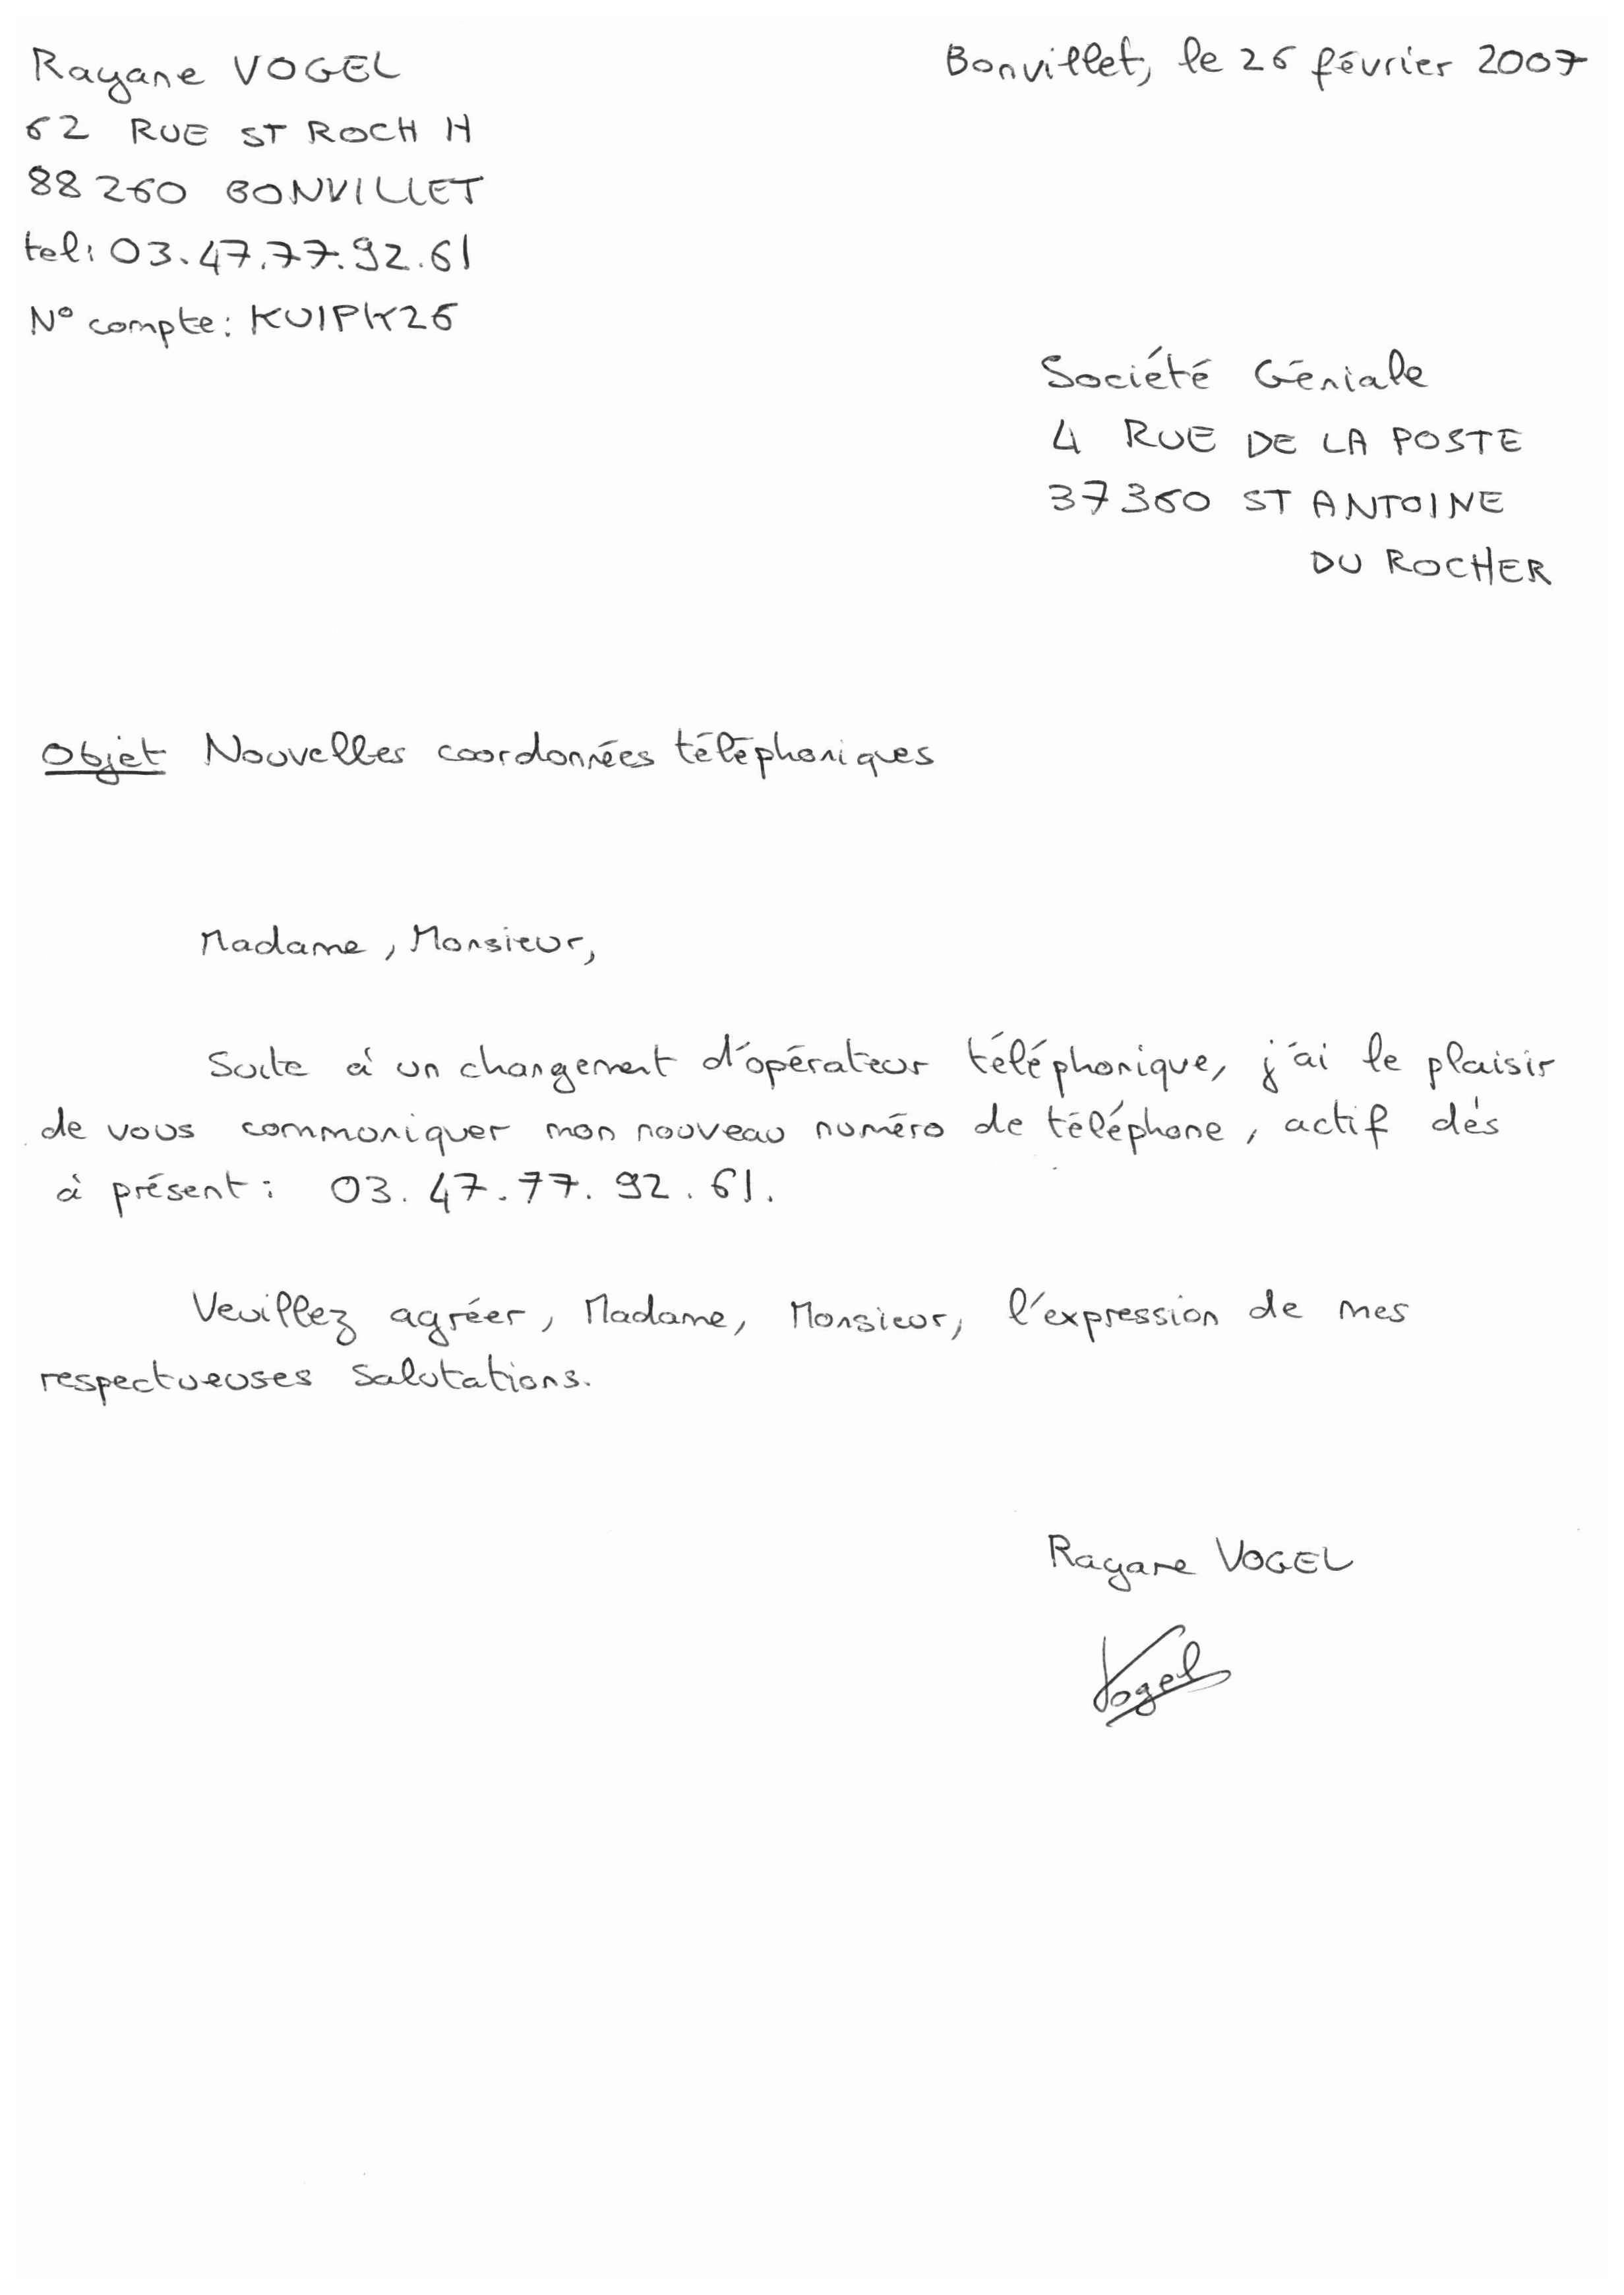 Rayane VOGEL
62 RUE ST ROCH H
88260 BONVILLET
tel: 03.47.77.92.61
N° compte: KUIPK26
Bonvillet, le 26 février 2007
Société Géniale
4 RUE DE LA POSTE
37360 ST ANTOINE
DU ROCHER
Objet Nouvelles coordonnées téléphoniques
Madame, Monsieur,
Suite à un changement d'opérateur téléphonique, j'ai le plaisir
de vous communiquer mon nouveau numéro de téléphone, actif dès
à présent: 03.47.77.92.61.
Veuillez agréer, Madame, Monsieur, l'expression de mes
respectueuses salutations.
Rayane VOGEL
Vogel